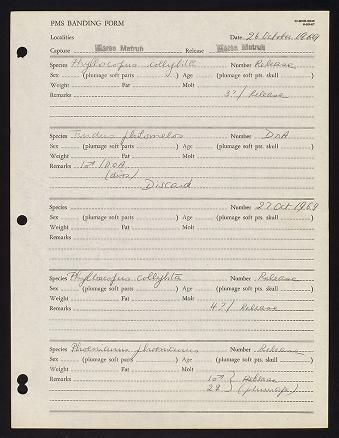 PMS BANDING FORM
Localities Date 26 October 1969
Capture Marsa Matruh Release Marsa Matruh
Species Phylloscopus collybita Number Release
Sex (plumage soft parts ) Age (plumage soft pts. skull )
Weight Fat Molt
Remarks 3?/ Release
Species Turdus philomelos Number DOA
Sex (plumage soft parts ) Age (plumage soft pts. skull )
Weight Fat Molt
Remarks 1 DOA
Discard
Species Number 27 Oct 1969
Sex (plumage soft parts ) Age (plumage soft pts. skull )
Weight Fat Molt
Remarks
Species Phylloscopus collybita Number Release
Sex (plumage soft parts ) Age (plumage soft pts. skull )
Weight Fat Molt
Remarks 4?/ Release
Species Phoenicurus phoenicurus Number Release
Sex (plumage soft parts ) Age (plumage soft pts. skull )
Weight Fat Molt
Remarks 1♂ } Release
2♀ } (plumage)